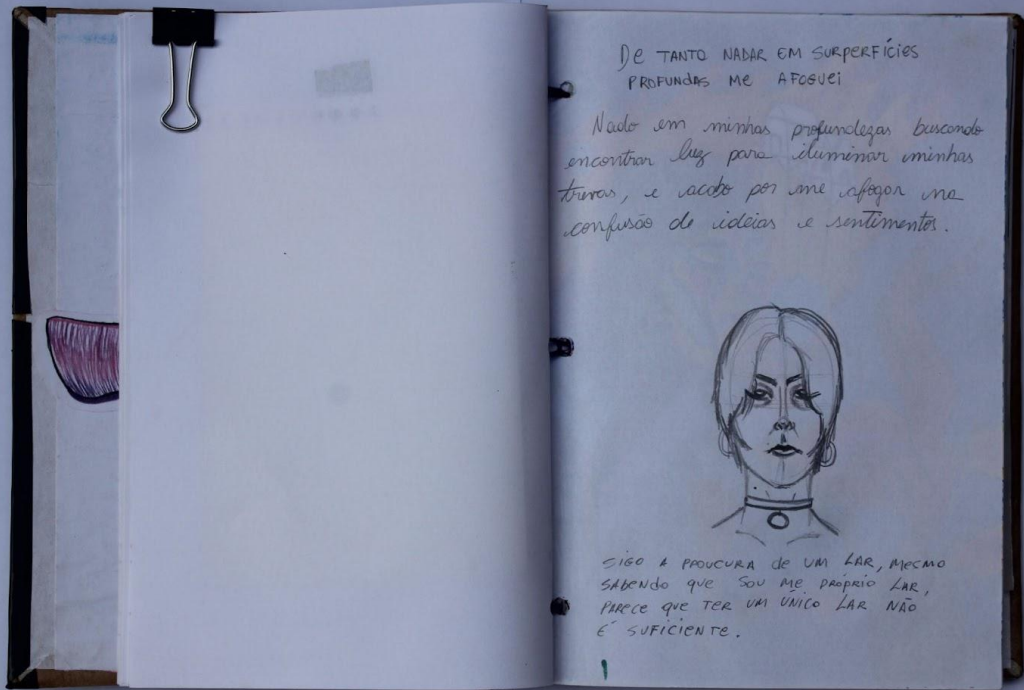 De TANTO NADAR EM SURPERFÍCIES
PROFUNDAS ME AFOGUEI
Nado em minhas profundezas buscando
encontrar luz para iluminar minhas
trevas, e acabo por me afogar na
confusão de ideias e sentimentos.
SIGO A PROUCURA de UM LAR, MESMO
SABENDO QUE SOU ME PRÓPRIO LAR,
PARECE QUE TER UM ÚNICO LAR NÃO
É SUFICIENTE.